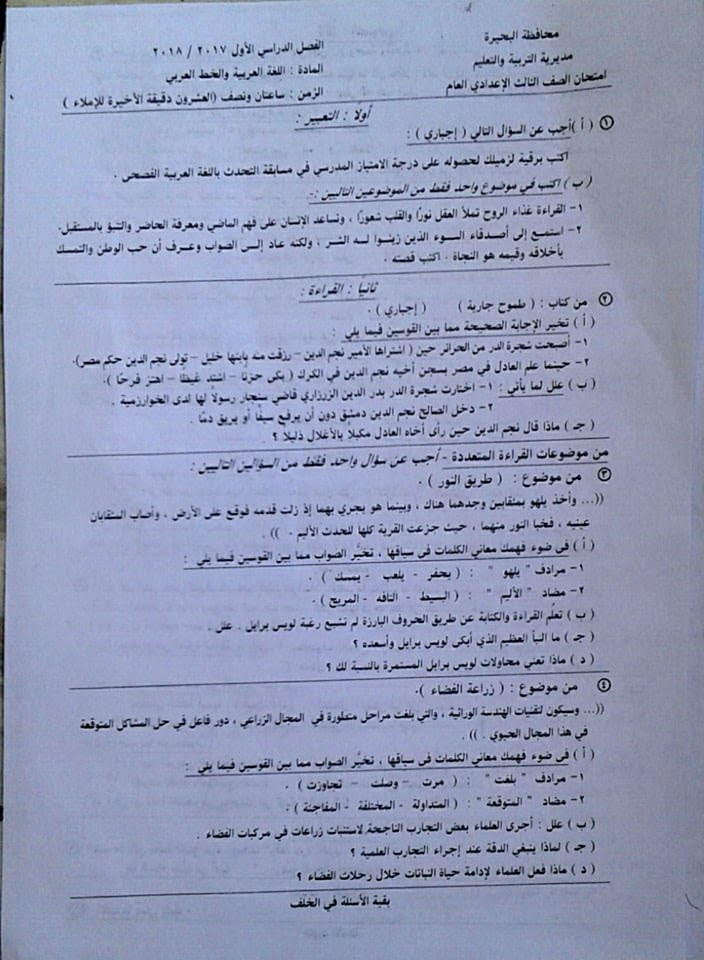 محافظة البحيرة
مديرية التربية والتعليم
امتحان الصف الثالث الإعدادي العام
الفصل الدراسي الأول ٢٠١٧ / ٢٠١٨
المادة : اللغة العربية والخط العربي
الزمن : ساعتان ونصف (العشرون دقيقة الأخيرة للإملاء )
أولاً : التعبير :
١ ( أ )أجب عن السؤال التالي ( إجباري ) :
اكتب برقية لزميلك لحصوله على درجة الامتياز المدرسي في مسابقة التحدث باللغة العربية الفصحى .
( ب ) اكتب في موضوع واحد فقط من الموضوعين التاليين :-
١- القراءة غذاء الروح تملأ العقل نورًا والقلب شعورًا ، وتساعد الإنسان على فهم الماضي ومعرفة الحاضر والتنبؤ بالمستقبل.
٢- استمع إلى أصدقاء السوء الذين زينوا له الشر ، ولكنه عاد إلى الصواب وعرف أن حب الوطن والتمسك
بأخلاقه وقيمه هو النجاة . اكتب قصته .
ثانيًا : القراءة :
٢ من كتاب : ( طموح جارية ) ( إجباري ) .
( أ ) تخير الإجابة الصحيحة مما بين القوسين فيما يلي :
١- أصبحت شجرة الدر من الحرائر حين ( اشتراها الأمير نجم الدين – رزقت منه بابنها خليل – تولى نجم الدين حكم مصر).
٢- حينما علم العادل في مصر بسجن أخيه نجم الدين في الكرك ( بكى حزنًا – اشتد غيظًا – اهتز فرحًا ).
( ب ) علل لما يأتي : ١- اختارت شجرة الدر بدر الدين الزرزاري قاضي سنجار رسولاً لها لدى الخوارزمية .
٢- دخل الصالح نجم الدين دمشق دون أن يرفع سيفًا أو يريق دمًا .
( جـ ) ماذا قال نجم الدين حين رأى أخاه العادل مكبلاً بالأغلال ذليلاً ؟ .
من موضوعات القراءة المتعددة - أجب عن سؤال واحد فقط من السؤالين التاليين :
٣ من موضوع : ( طريق النور ) .
((... وأخذ يلهو بمثقابين وجدهما هناك ، وبينما هو يجري بهما إذ زلت قدمه فوقع على الأرض ، وأصاب المثقابان
عينيه ، فخبا النور منهما ، حيث جزعت القرية كلها للحدث الأليم . )) .
( أ ) في ضوء فهمك معاني الكلمات في سياقها ، تخيَّر الصواب مما بين القوسين فيما يلي :
١- مرادف " يلهو " : ( يحفر - يلعب - يمسك ) .
٢- مضاد " الأليم " : ( البسيط - التافه - المريح ) .
( ب ) تعلُّم القراءة والكتابة عن طريق الحروف البارزة لم تشبع رغبة لويس برايل . علل .
( جـ ) ما النبأ العظيم الذي أبكى لويس برايل وأسعده ؟
( د ) ماذا تعني محاولات لويس برايل المستمرة بالنسبة لك ؟
٤ من موضوع : ( زراعة الفضاء ).
((... وسيكون لتقنيات الهندسة الوراثية ، والتي بلغت مراحل متطورة في المجال الزراعي ، دور فاعل في حل المشاكل المتوقعة
في هذا المجال الحيوي . )) .
( أ ) في ضوء فهمك معاني الكلمات في سياقها ، تخيَّر الصواب مما بين القوسين فيما يلي :
١- مرادف " بلغت " : ( مرت – وصلت – تجاوزت ) .
٢- مضاد " المتوقعة " : ( المتداولة - المختلفة - المفاجئة ) .
( ب ) علل : أجرى العلماء بعض التجارب الناجحة لاستنبات زراعات في مركبات الفضاء .
( جـ ) لماذا ينبغي الدقة عند إجراء التجارب العلمية ؟
( د ) ماذا فعل العلماء لإدامة حياة النباتات خلال رحلات الفضاء ؟
بقية الأسئلة في الخلف